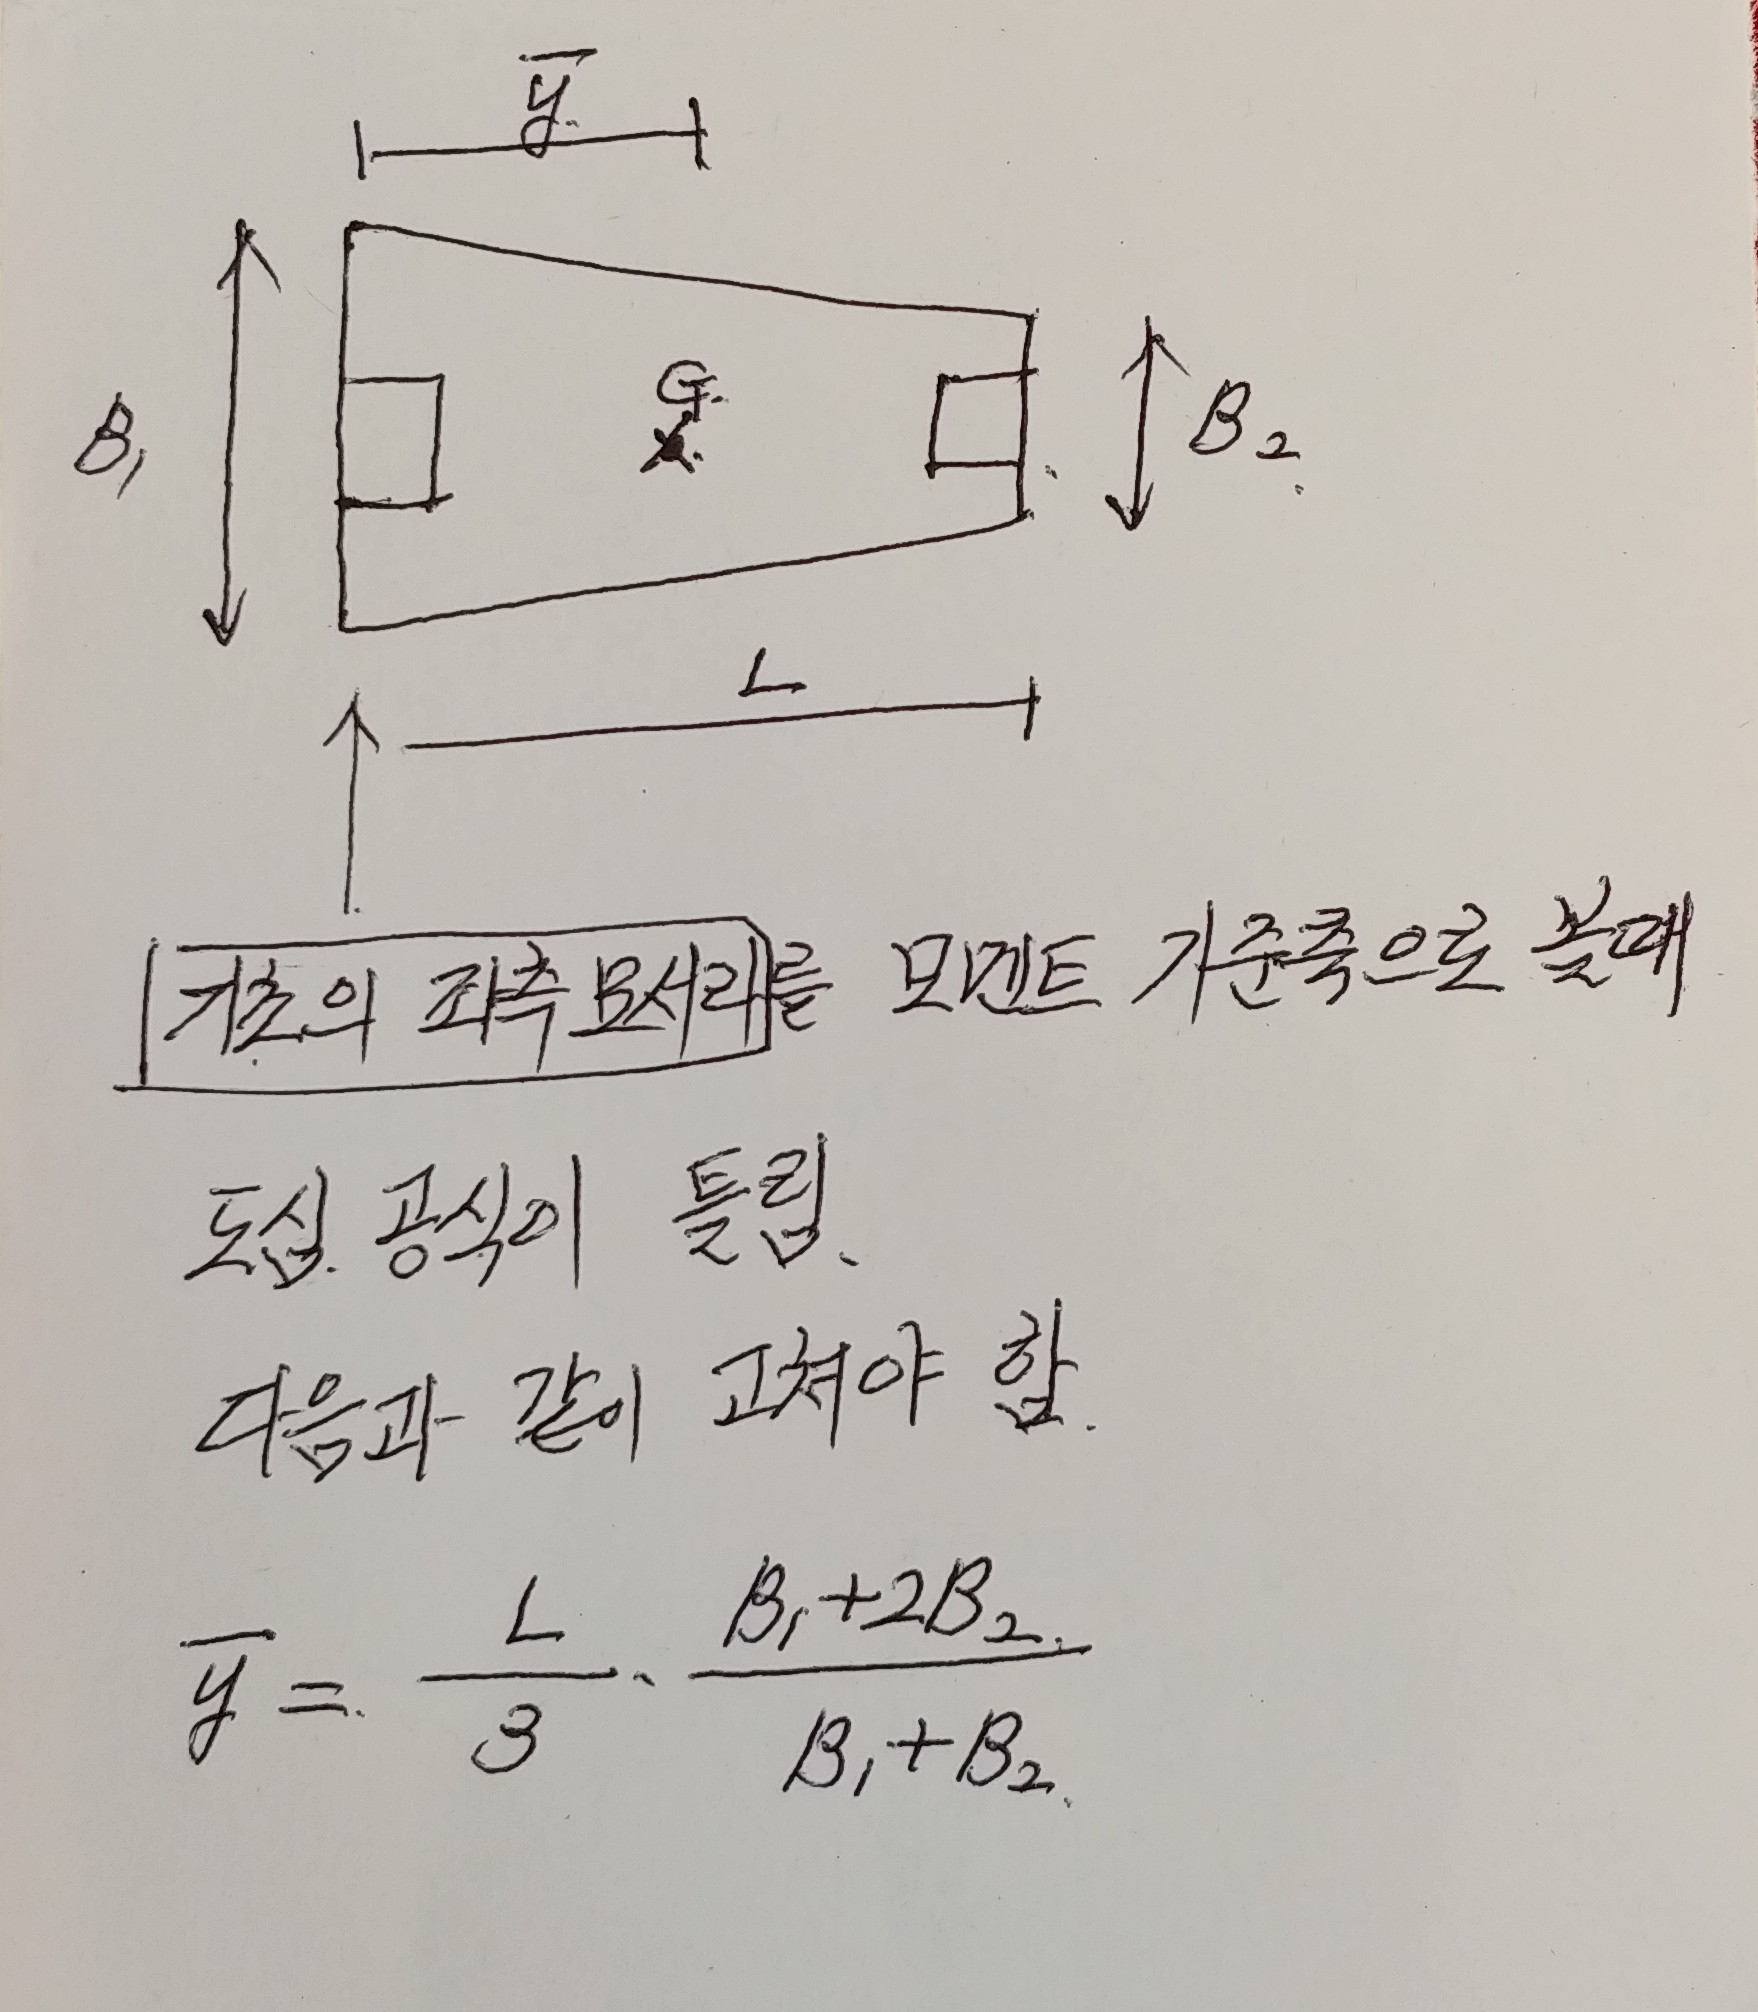 y̅
B₁
G.
B₂
L
기초의 좌측 모서리를 모멘트 기준축으로 볼때
도심 공식이 틀림.
다음과 같이 고쳐야 함.
y̅ = L/3 · (B₁+2B₂)/(B₁+B₂)